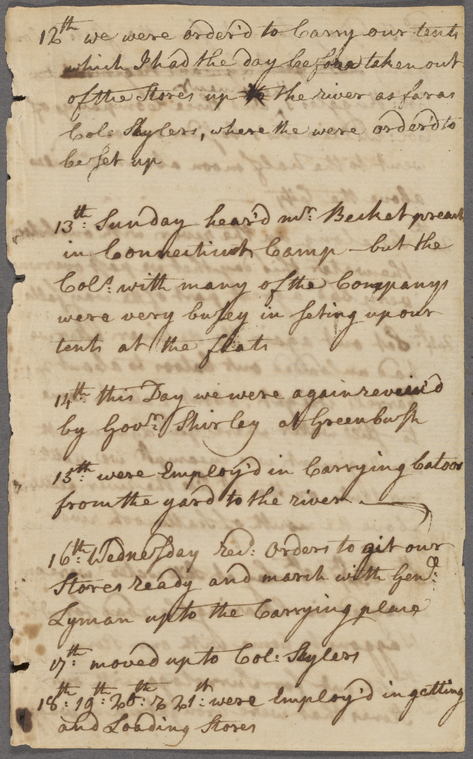 12th we were order'd to Carry our tents
which I had the day before taken out
of the Stores up to the river as far as
Col: Skylers, where the were order'd to
be Set up
13th: Sunday hear'd mr. Becket preach
in Connecticut Camp but the
Cols. with many of the Companys
were very busey in Seting up our
tents at the flats
14th: this Day we were again reveiw'd
by Govr. Shirley at Greenbush
15th: were Employ'd in Carrying Batoos
from the yard to the river
16th: Wednesday recd: Orders to git our
Stores ready and march with Genl.
Lyman up to the Carrying place
17th: moved up to Col: Skylers
18th: 19th: 20th: & 21st: were Employ'd in getting
and Loading Stores